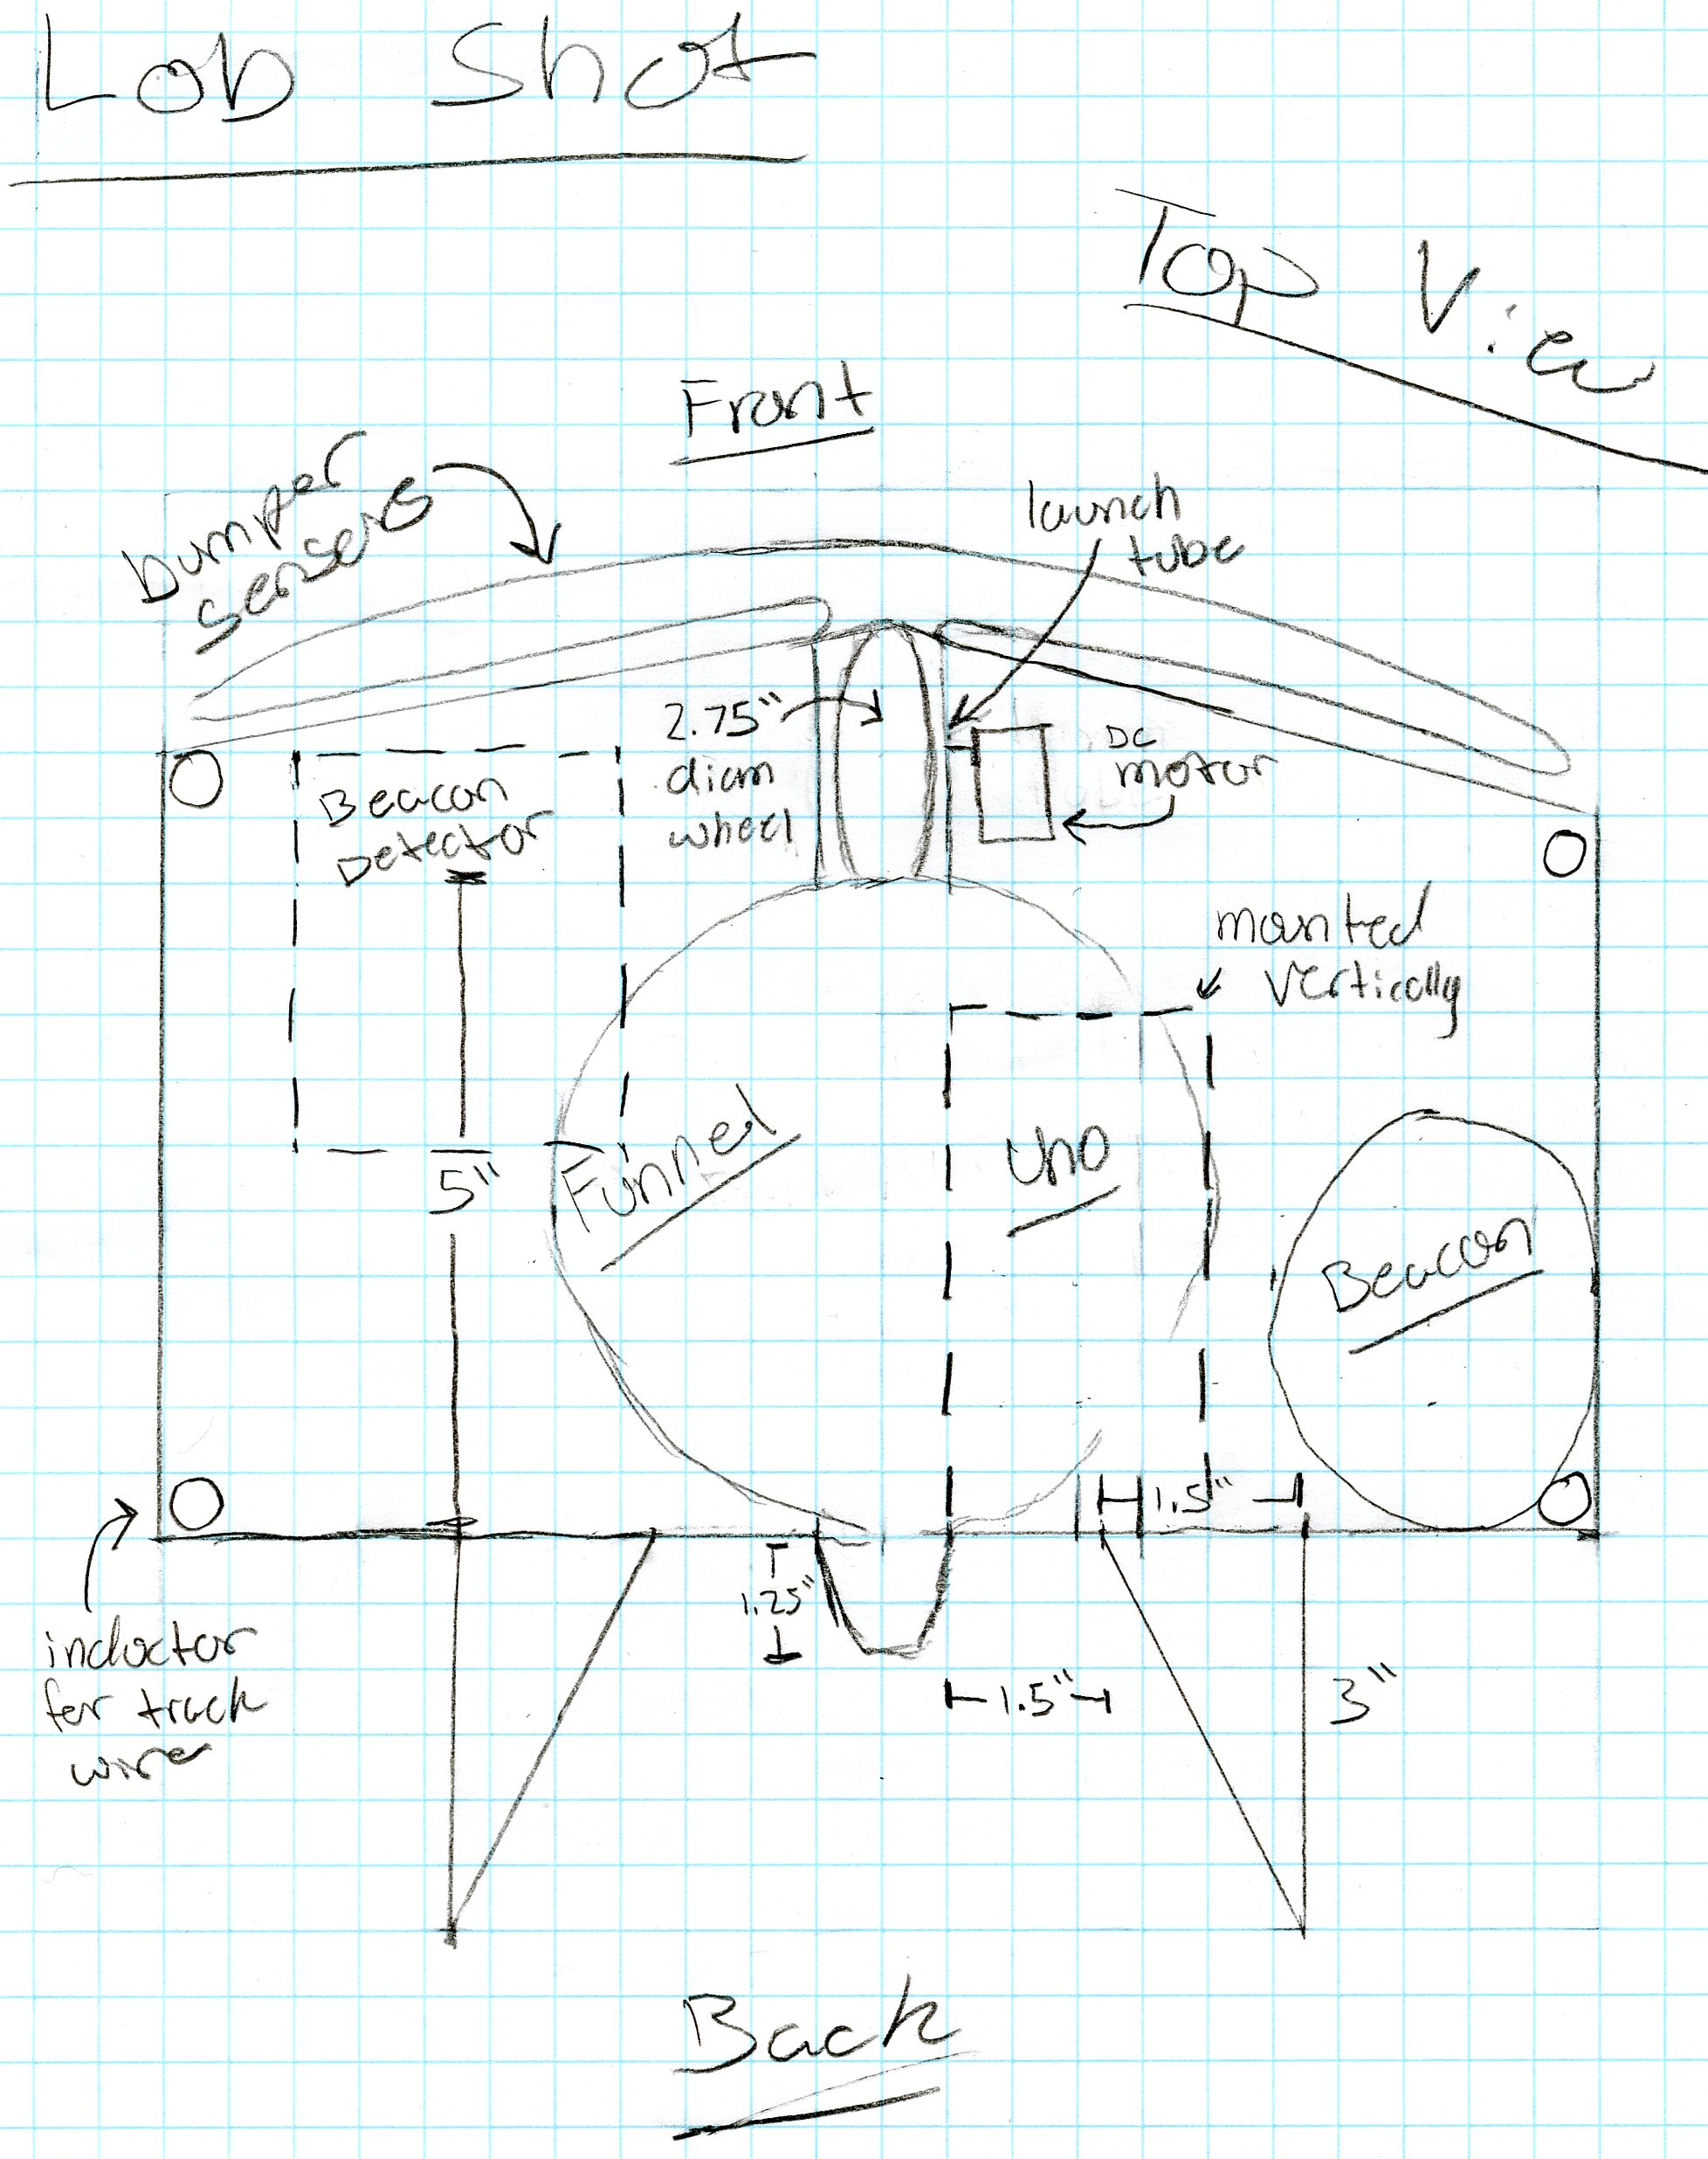 Lob Shot
Top View
Front
bumper
sensors
launch
tube
2.75"
diam
wheel
DC
motor
Beacon
Detector
mounted
vertically
Funnel
Uno
5"
Beacon
1.5"
1.25"
inductor
for track
wire
1.5"
3"
Back